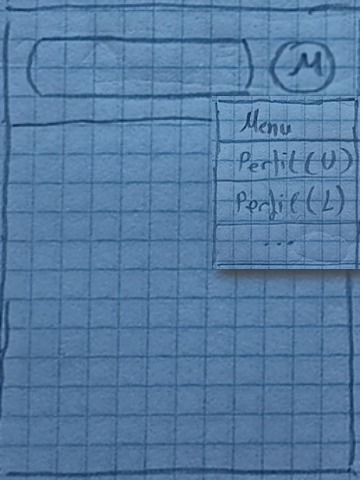 M
Menu
Perfil (U)
Perfil (L)
...